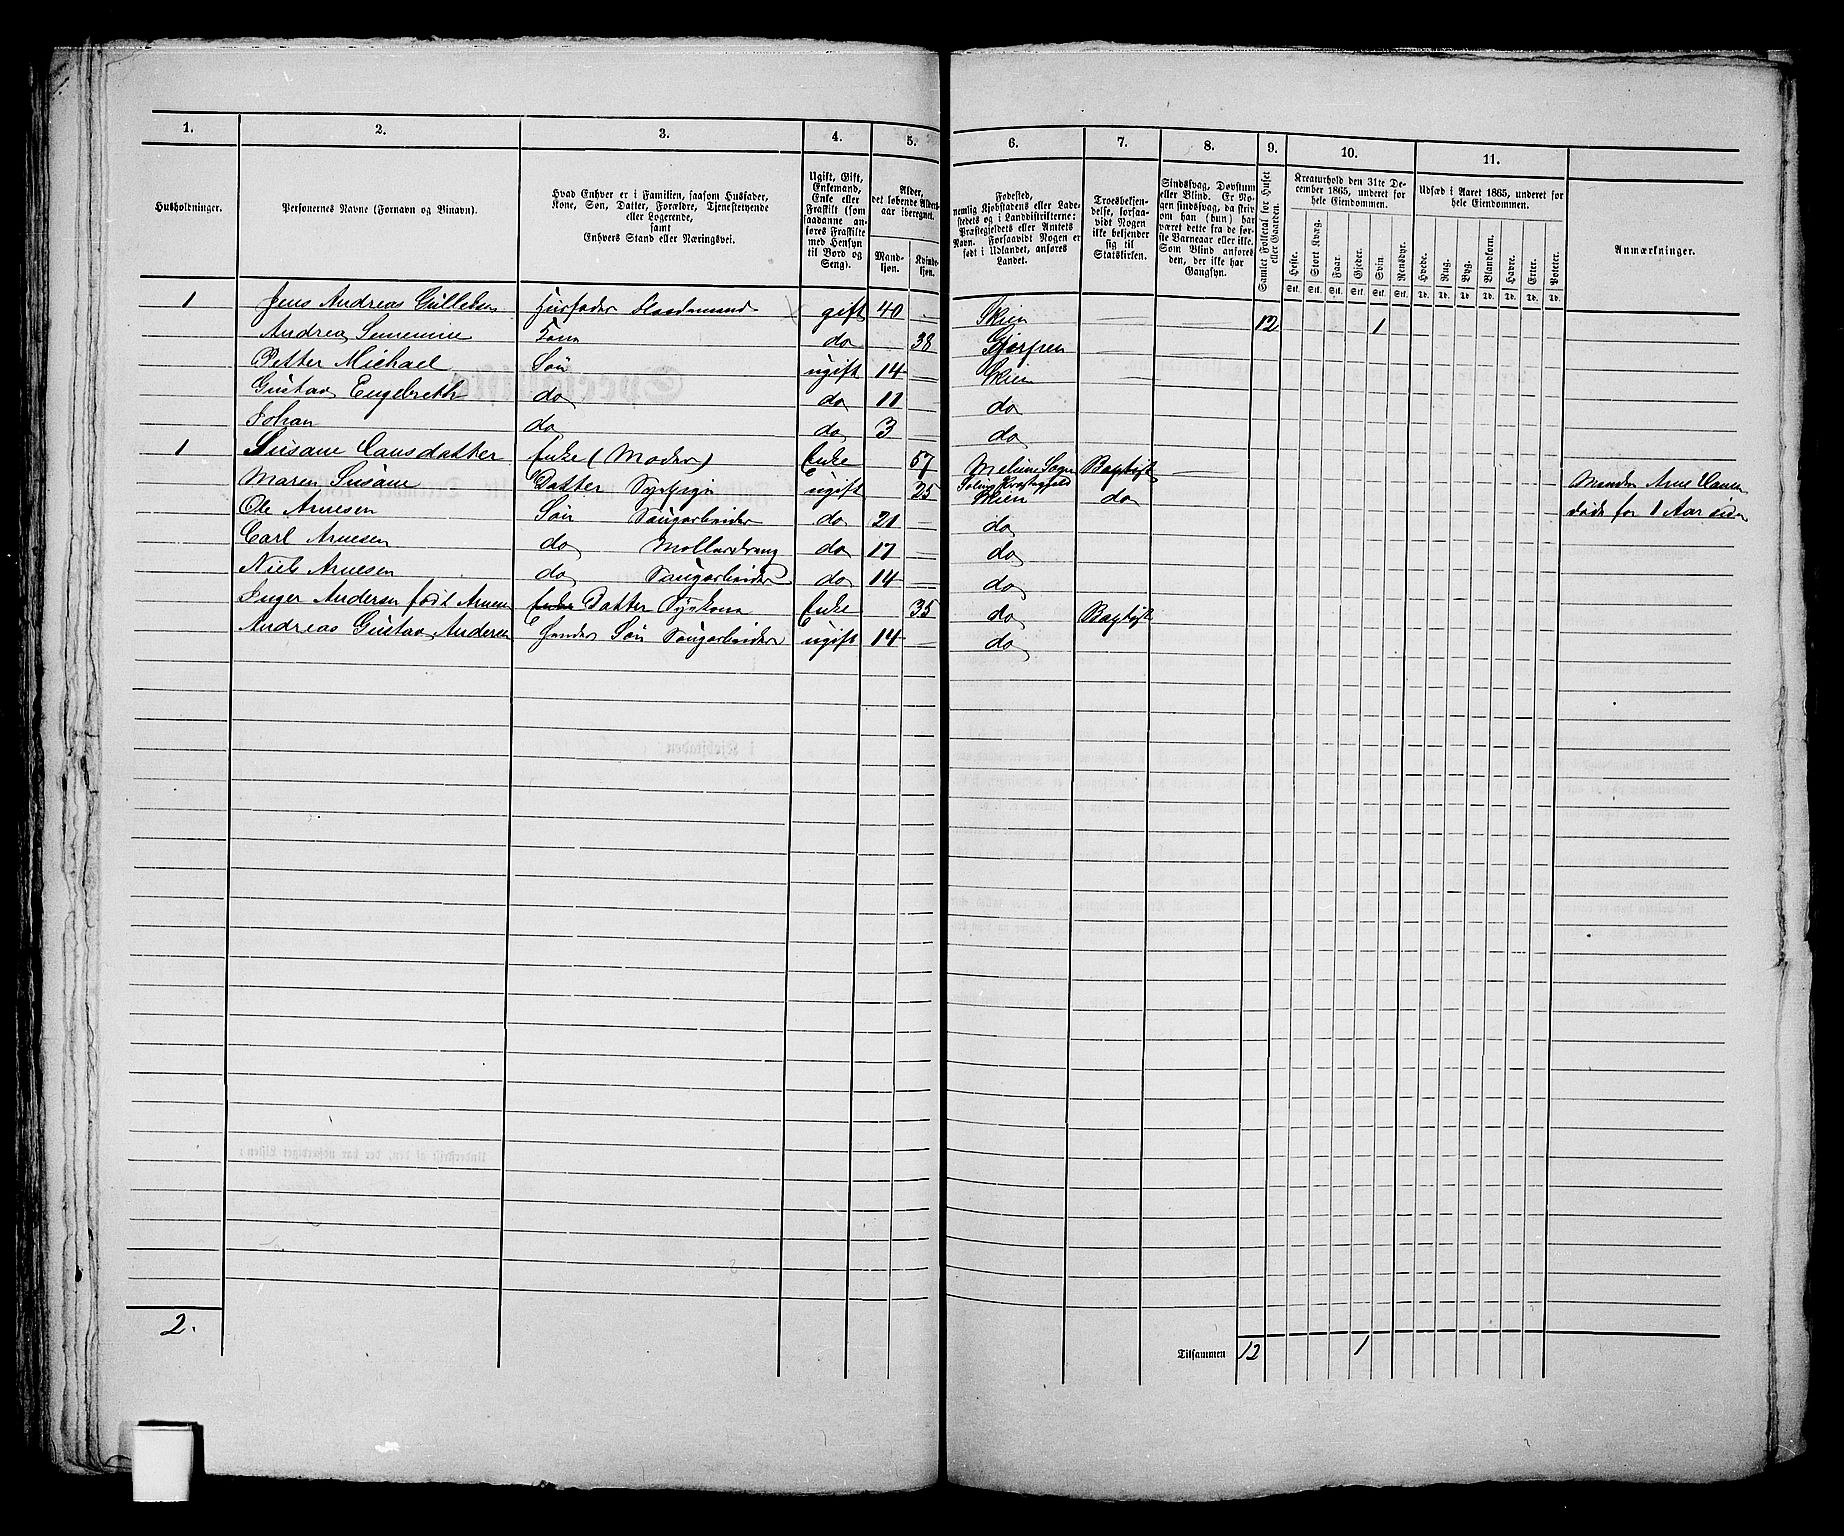 1. 2. 3. 4. 5. 6. 7. 8. 9. 10. 11.
Husholdninger.
Personernes Navne (Fornavn og Binavn).
Hvad Enhver er i Familien, saasom Husfader, Kone, Søn, Datter, Forældre, Tjenestetyende eller Logerende, samt Enhvers Stand eller Næringsvei.
Ugift, Gift, Enkemand, Enke eller Fraskilt (som saadanne anføres Fraskilte med Hensyn til Bord og Seng).
Alder, det løbende Alders-aar iberegnet.
Mand-kjøn. Kvinde-kjøn.
Fødested, nemlig Kjøbstadens eller Ladestedets og i Landdistrikterne: Præstegjeldets eller Amtets Navn. Forsaavidt Nogen er født i Udlandet, anføres Landet.
Troesbekjendelse, forsaavidt Nogen ikke bekjender sig til Statskirken.
Sindssvag, Døvstum eller Blind. Er Nogen sindssvag, da skrives om han (hun) har været dette fra de første Barneaar eller ikke. Som Blind anføres den, der ikke har Gangsyn.
Samlet Folketal for Huset eller Gaarden.
Kreaturhold den 31te December 1865, underet for hele Eiendommen.
Heste. Stort Kvæg. Faar. Gjeder. Svin. Rensdyr.
Stk. Stk. Stk. Stk. Stk. Stk.
Udsæd i Aaret 1865, underet for hele Eiendommen.
Hvede. Rug. Byg. Blandkorn. Havre. Erter. Poteter.
Td. Td. Td. Td. Td. Td. Td.
Anmærkninger.
1 Jens Andreas Gulleksen Husfader gift 40 Skien 12 1
Andrea Kone do 38 Gjerpen
Petter Michael Søn ugift 14 Skien
Gustav Engebreth do do 11 do
Johan do do 3 do
1 Susane Clausdatter Enke (Moder) Enke 57 Melum Sogn Baptist
Maren Susane Datter Sypige ugift 25 Skien do Manden Arne
Ole Arnesen Søn Saugarbeider do 21 do døde for 1 Aar siden
Carl Arnesen do Møllerdreng do 17 do
Niels Arnesen do Saugarbeider do 14 do
Inger Andersen født Arnesen Enke Datter Sykone Enke 35 do Baptist
Andreas Gustav Andersen hendes Søn Saugarbeider ugift 14 do
2.
Tilsammen 12 1